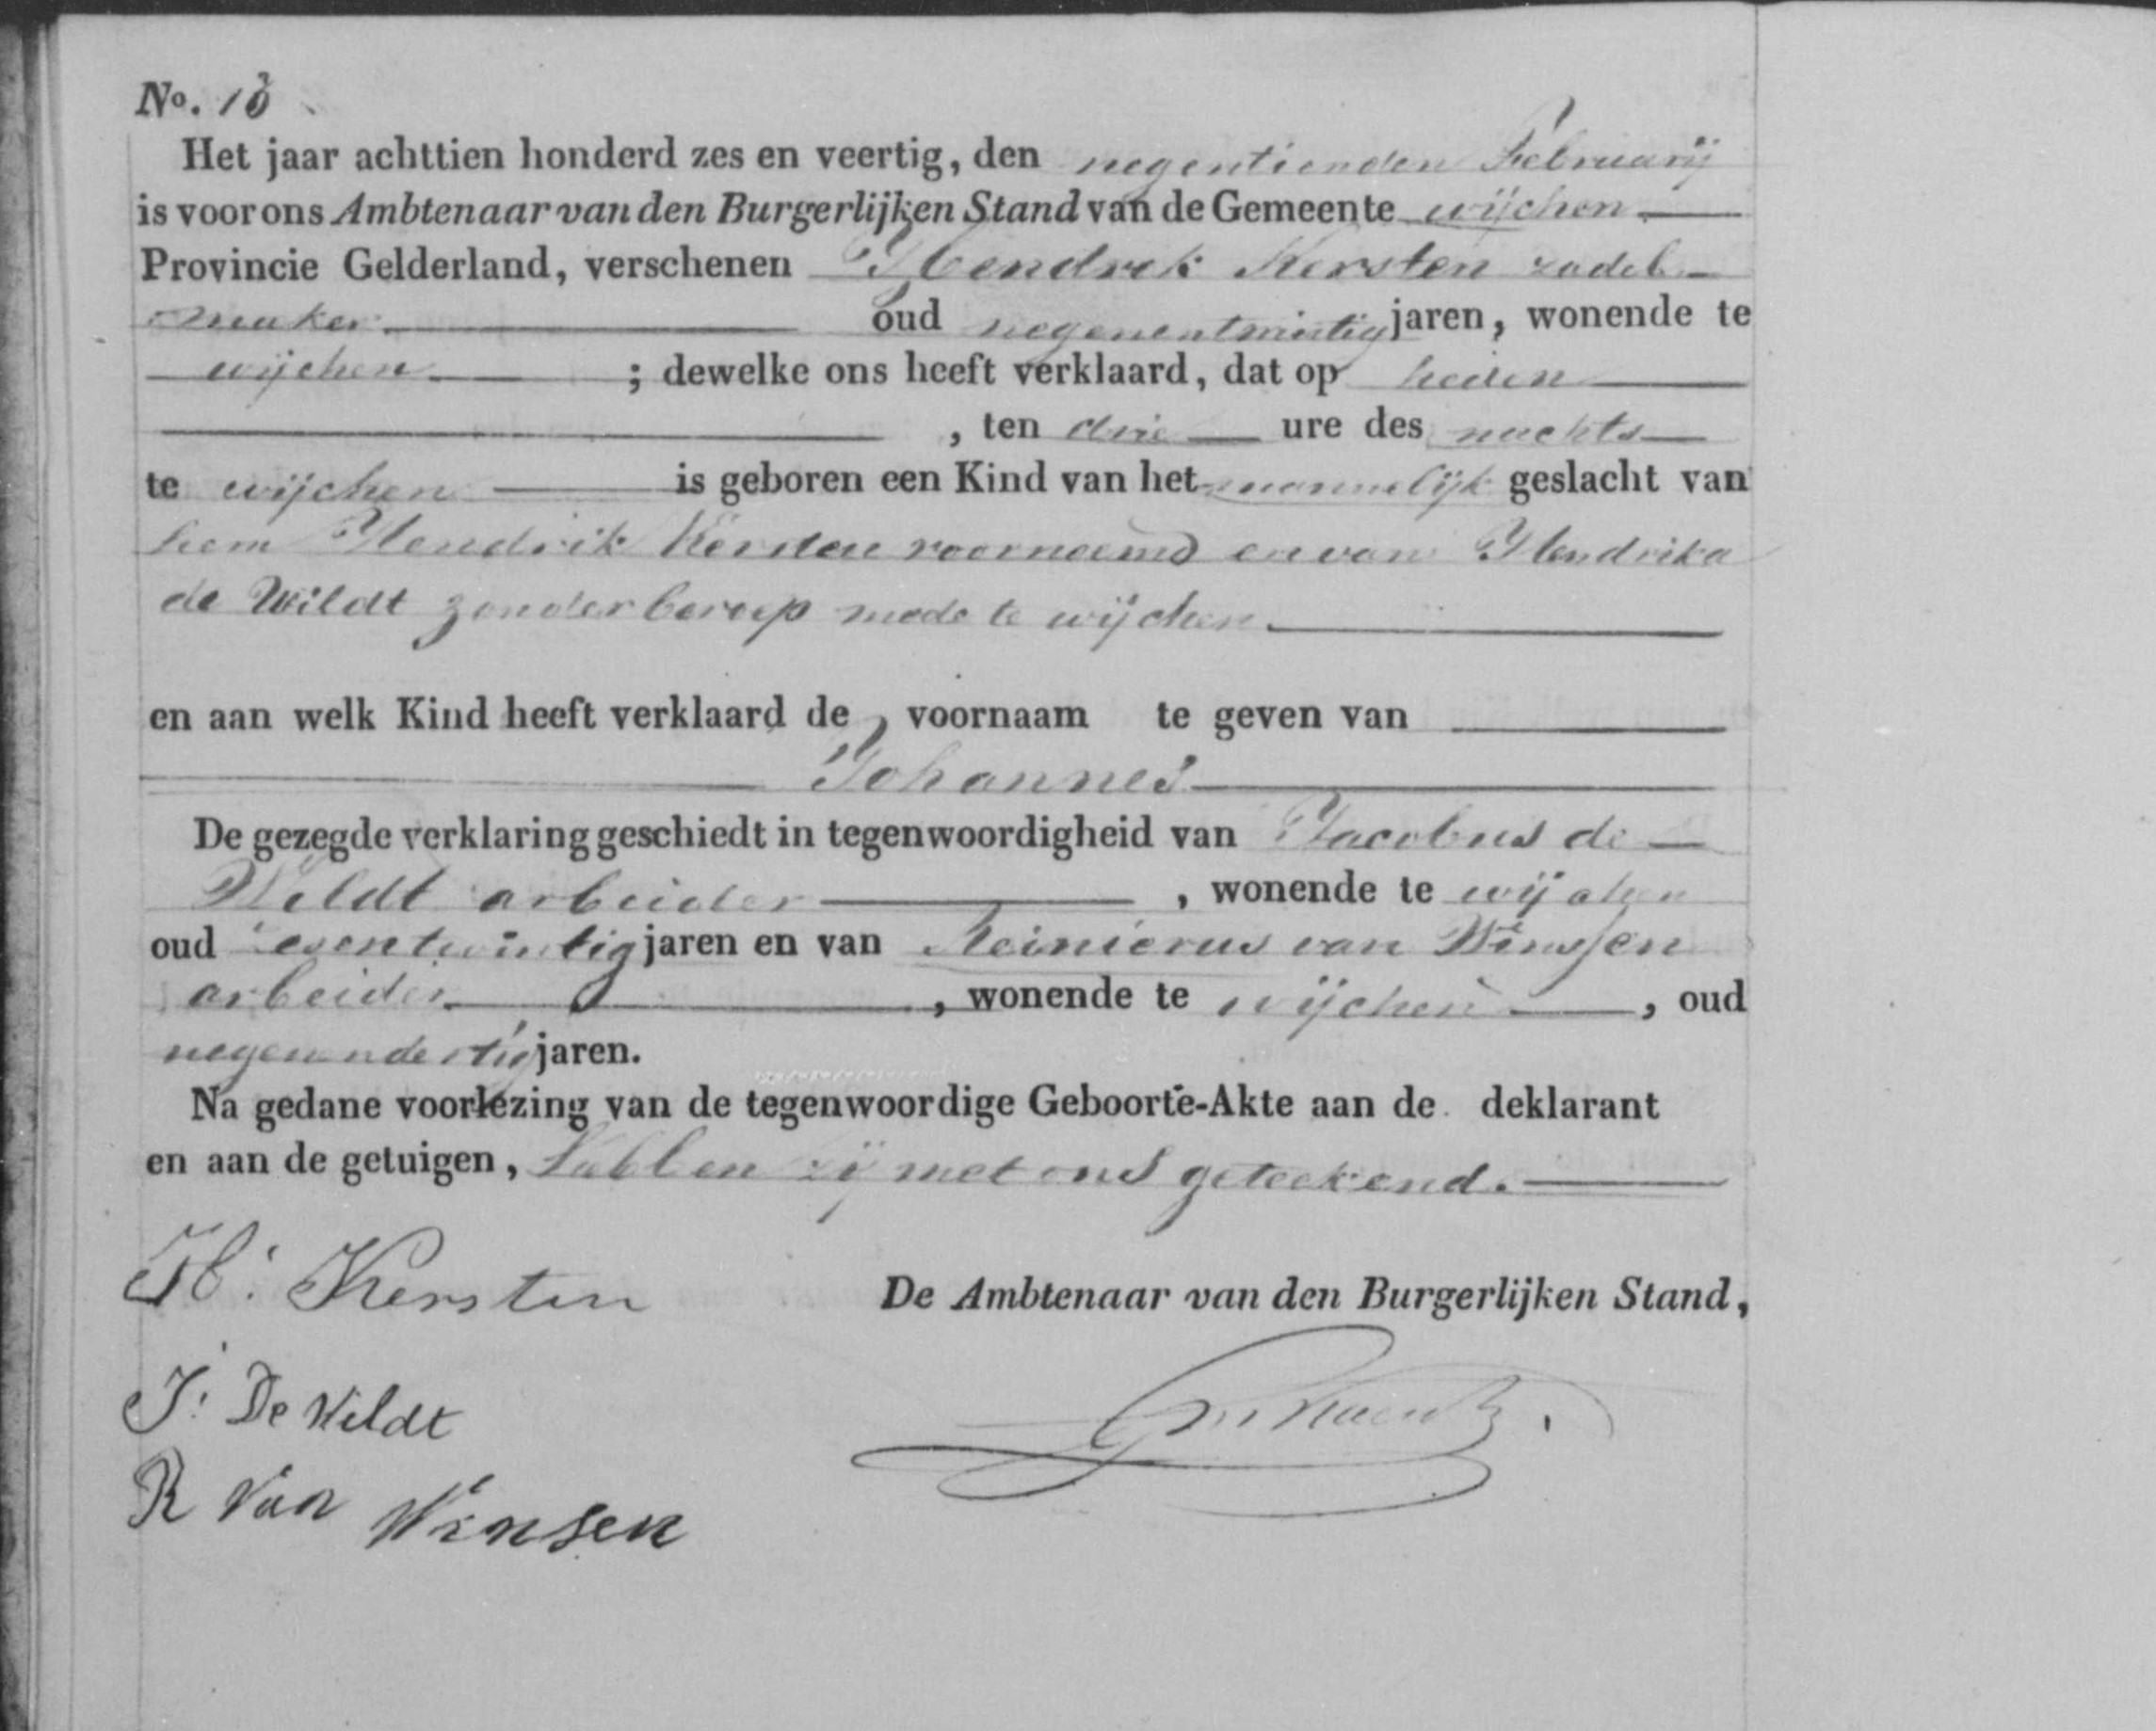 No. 18
Het jaar achttien honderd zes en veertig, den negentienden Februarij
is voor ons Ambtenaar van den Burgerlijken Stand van de Gemeente wijchen
Provincie Gelderland, verschenen Hendrik Kersten zadel
maker oud negenentwintig jaren, wonende te
wijchen ; dewelke ons heeft verklaard, dat op heden
, ten drie ure des nachts
te wijchen is geboren een Kind van het mannelijk geslacht van
hem Hendrik Kersten voornoemd en van Hendrika
de Wildt zonder beroep mede te wijchen
en aan welk Kind heeft verklaard de voornaam te geven van
Johannes
De gezegde verklaring geschiedt in tegenwoordigheid van Jacobus de
Wildt arbeider , wonende te wijchen
oud zesentwintig jaren en van Reinierus van Winssen
arbeider , wonende te wijchen , oud
negenendertig jaren.
Na gedane voorlezing van de tegenwoordige Geboorte-Akte aan de deklarant
en aan de getuigen, hebben zij met ons geteekend.
H. Kersten
De Ambtenaar van den Burgerlijken Stand,
J. De Wildt
R Van Winsen